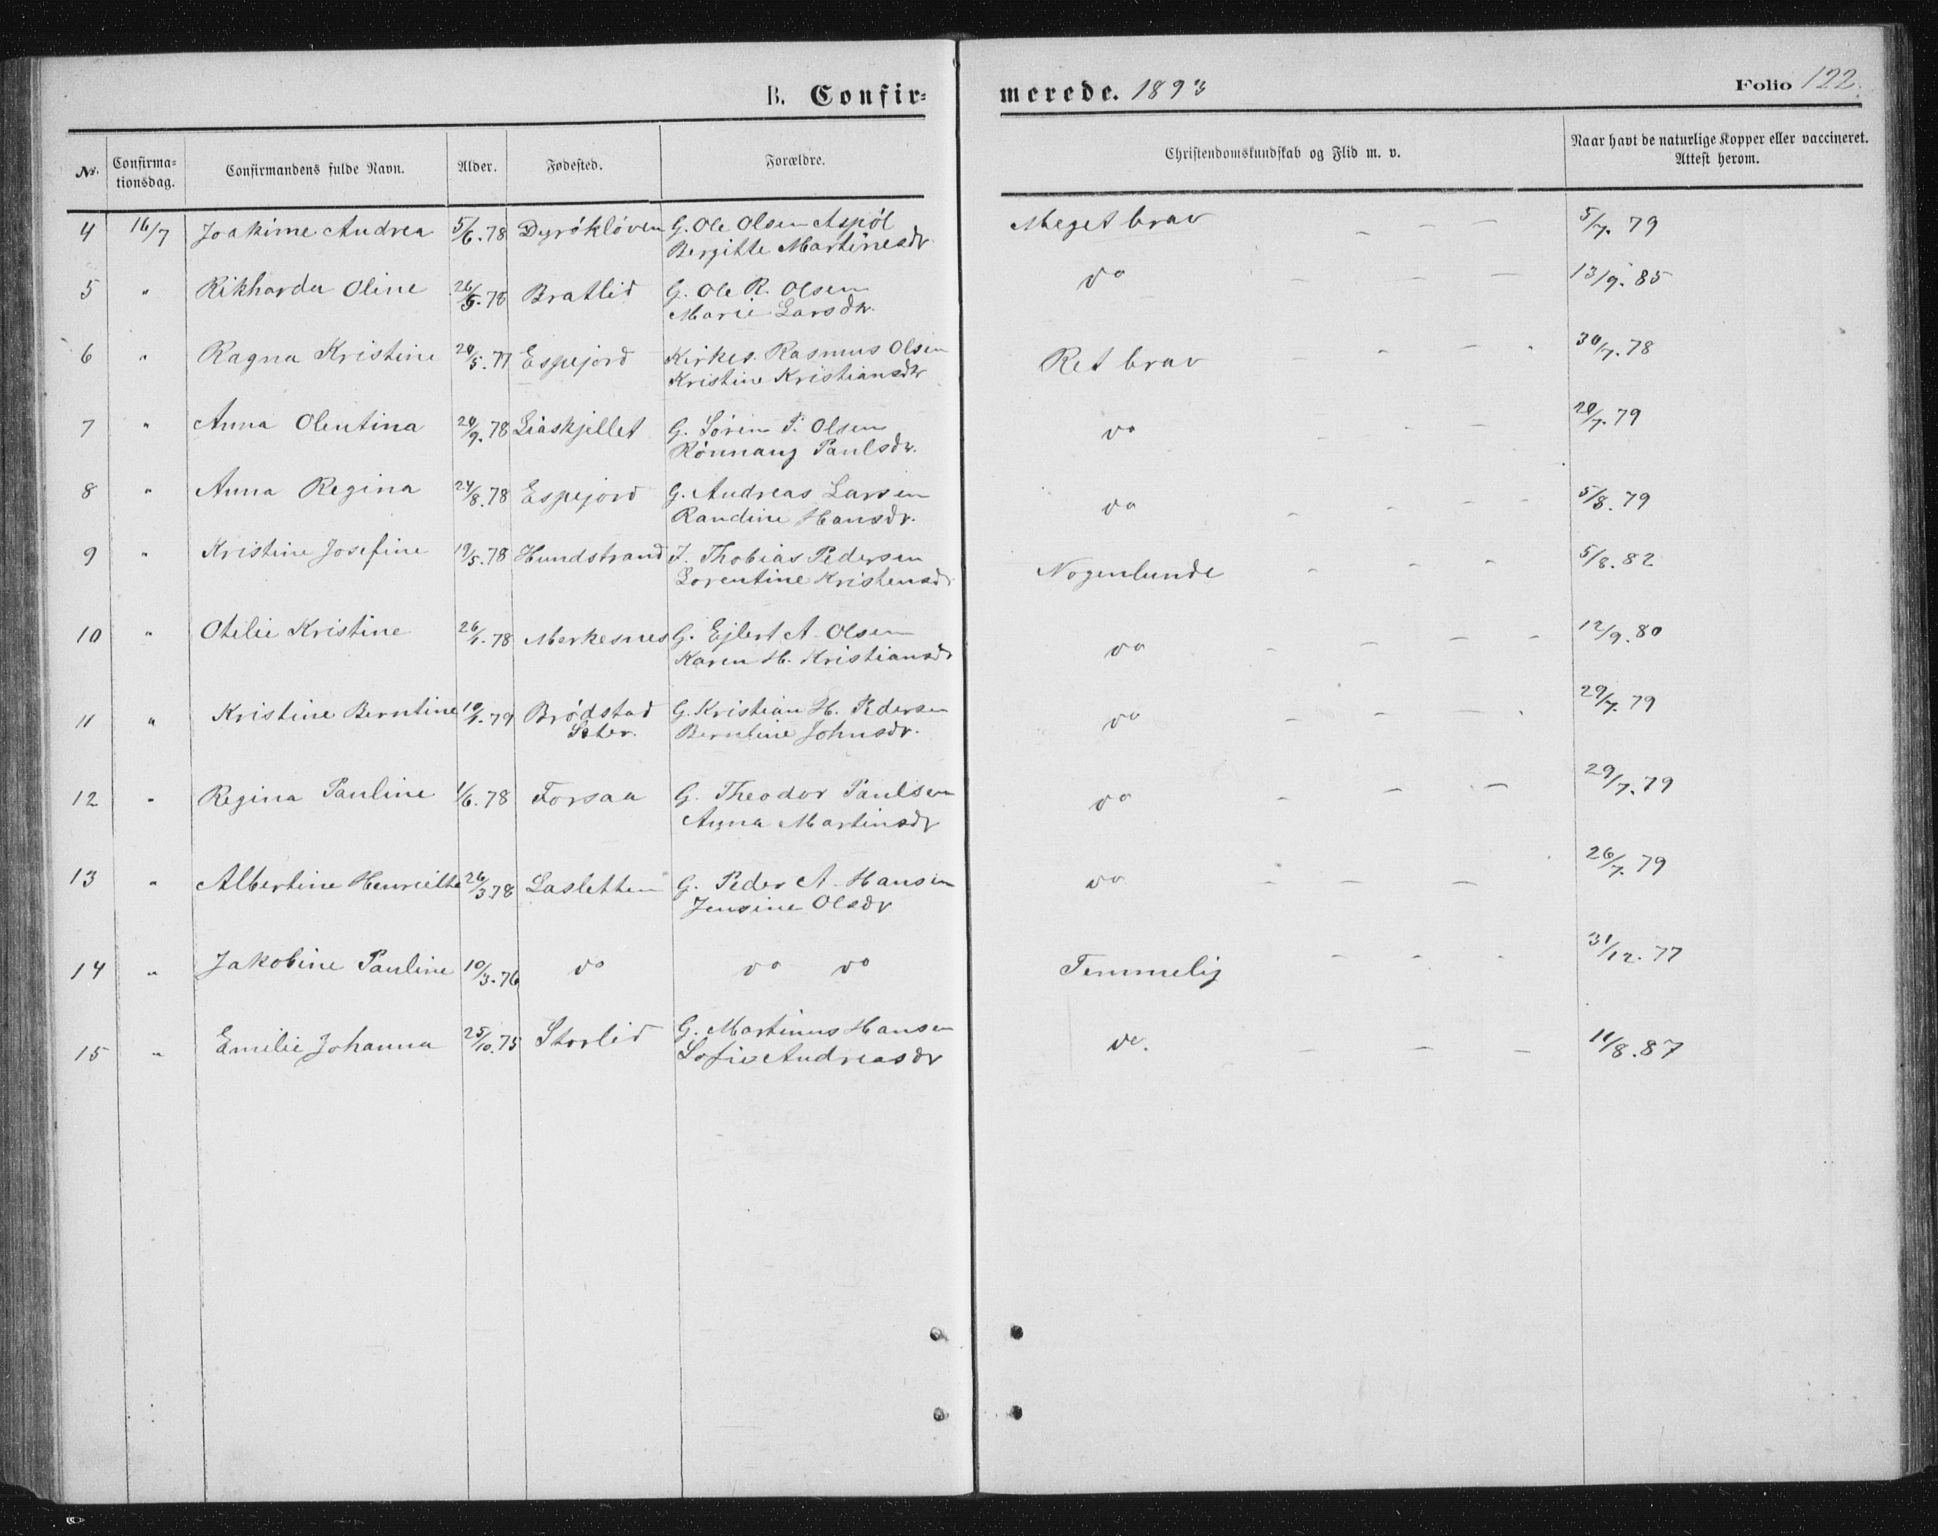 B. Confir= merede. 1893 Folio 122.
No. Confirma=tionsdag. Confirmandens fulde Navn. Alder. Fødested. Forældre. Christendomskundskab og Flid m. v. Naar havt de naturlige Kopper eller vaccineret. Attest herom.
4 16/7 Joakime Andrea 5/6.78 Dyrøkløven G. Ole Olsen Aspøl Meget brav - - - 5/7.79
Bergitte Martinesdr.
5 " Rikharda Oline 26/5.78 Bratlid G. Ole R. Olsen do - - - 13/9.85
Marie Larsdr.
6 " Ragna Kristine 20/5.77 Espejord Kirkes. Rasmus Olsen Ret brav - - - 30/7.78
Kristine Kristiansdr
7 " Anna Olentina 20/9.78 Liaskjellet G. Søren P. Olsen do - - - 20/7.79
Rønnaug Paulsdr.
8 " Anna Regina 24/8.78 Espejord G. Andreas Larsen do - - - 5/8.79
Randine Hansdr.
9 " Kristine Josefine 19/5.78 Hundstrand I. Thobias Pedersen Nogenlunde - - - 5/8.82
Lorentine Kristensdr
10 " Otilie Kristine 26/1.78 Merkesnes G. Ejlert A. Olsen do - - - 12/9.80
Karen H. Kristiansdr
11 " Kristine Berntine 10/1.79 Brødstad G. Kristian H. Pedersen do - - - 29/7.79
Seter. Berntine Johnsdr.
12 " Regina Pauline 1/6.78 Forsaa G. Theodor Paulsen do - - - 29/7.79
Anna Martinsdr
13 " Albertine Henriette 26/3.78 Lasletten G. Peder A. Hansen do - - - 26/7.79
Jensine Olsdr
14 " Jakobine Pauline 10/3.76 do do do Temmelig - - - 31/12.77
15 " Emilie Johanna 25/10.75 Storlid G. Martinus Hansen do. - - - 11/8.87
Sofie Andreasdr